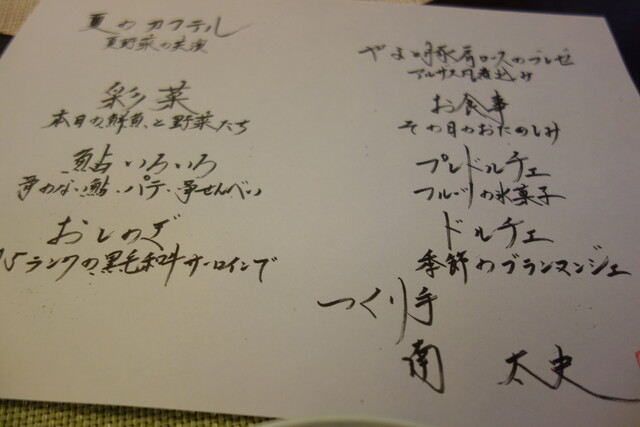 夏のカクテル
夏野菜の共演
彩菜
本日の鮮魚と野菜たち
鮎いろいろ
骨のない鮎・パテ・骨せんべい
おしのぎ
A5ランクの黒毛和牛サーロインで
やまと豚肩ロースのブレゼ
アルザス風煮込み
お食事
その日のおたのしみ
プレドルチェ
フルーツの氷菓子
ドルチェ
季節のブランマンジェ
つくり手
南 太史